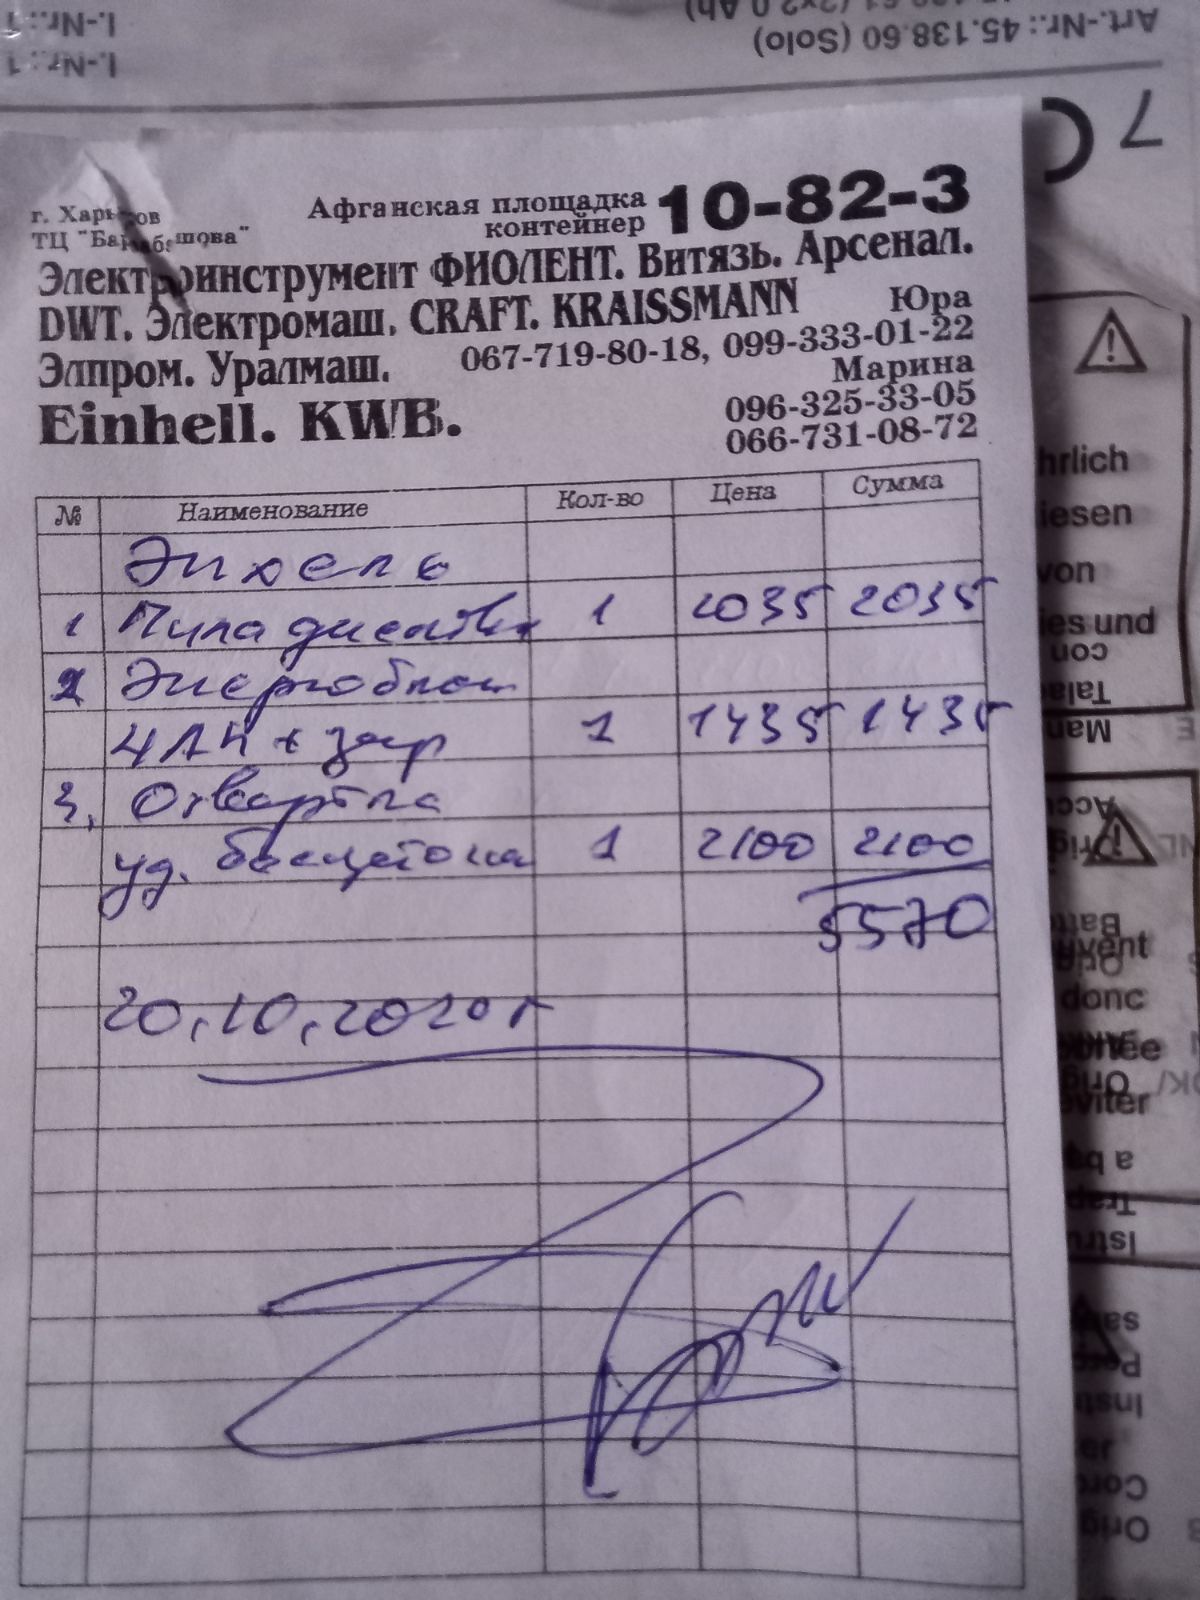 Art.-Nr.: 45.138.60 (Solo)
I.-Nr.: 1
I.-Nr.: 1
7
г. Харьков
ТЦ "Барабашова"
Афганская площадка
контейнер 10-82-3
Электроинструмент ФИОЛЕНТ. Витязь. Арсенал.
DWT. Электромаш. CRAFT. KRAISSMANN
Юра
Элпром. Уралмаш. 067-719-80-18, 099-333-01-22
Марина
Einhell. KWB. 096-325-33-05
066-731-08-72
№ Наименование Кол-во Цена Сумма
Энхель
1 Пила дисков 1 2035 2035
2 Энергоблок
4Ah + зар 1 1435 1435
3, Отвертка
уд. безщеточная 1 2100 2100
5570
20,10,2020г
hrlich
iesen
von
ies und
con
Man
uvent
donc
onnée
eviter
a ba